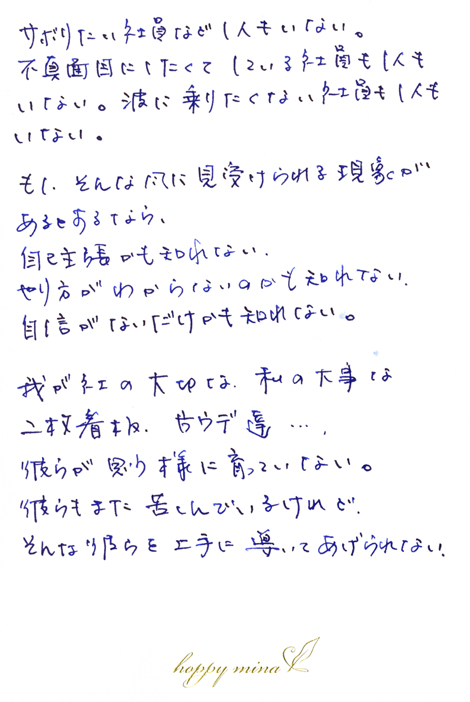 サボりたい社員など1人もいない。
不真面目にしたくてしている社員も1人も
いない。波に乗りたくない社員も1人も
いない。
もし、そんな風に見受けられる現象が
あるとするなら、
自己主張かも知れない、
やり方がわからないのかも知れない、
自信がないだけかも知れない。
我が社の大切な、私の大事な
二枚看板、右ウデ達…、
彼らが思う様に育っていない。
彼らもまた苦しんでいるけれど、
そんな彼らを上手に導いてあげられない、
happy mina